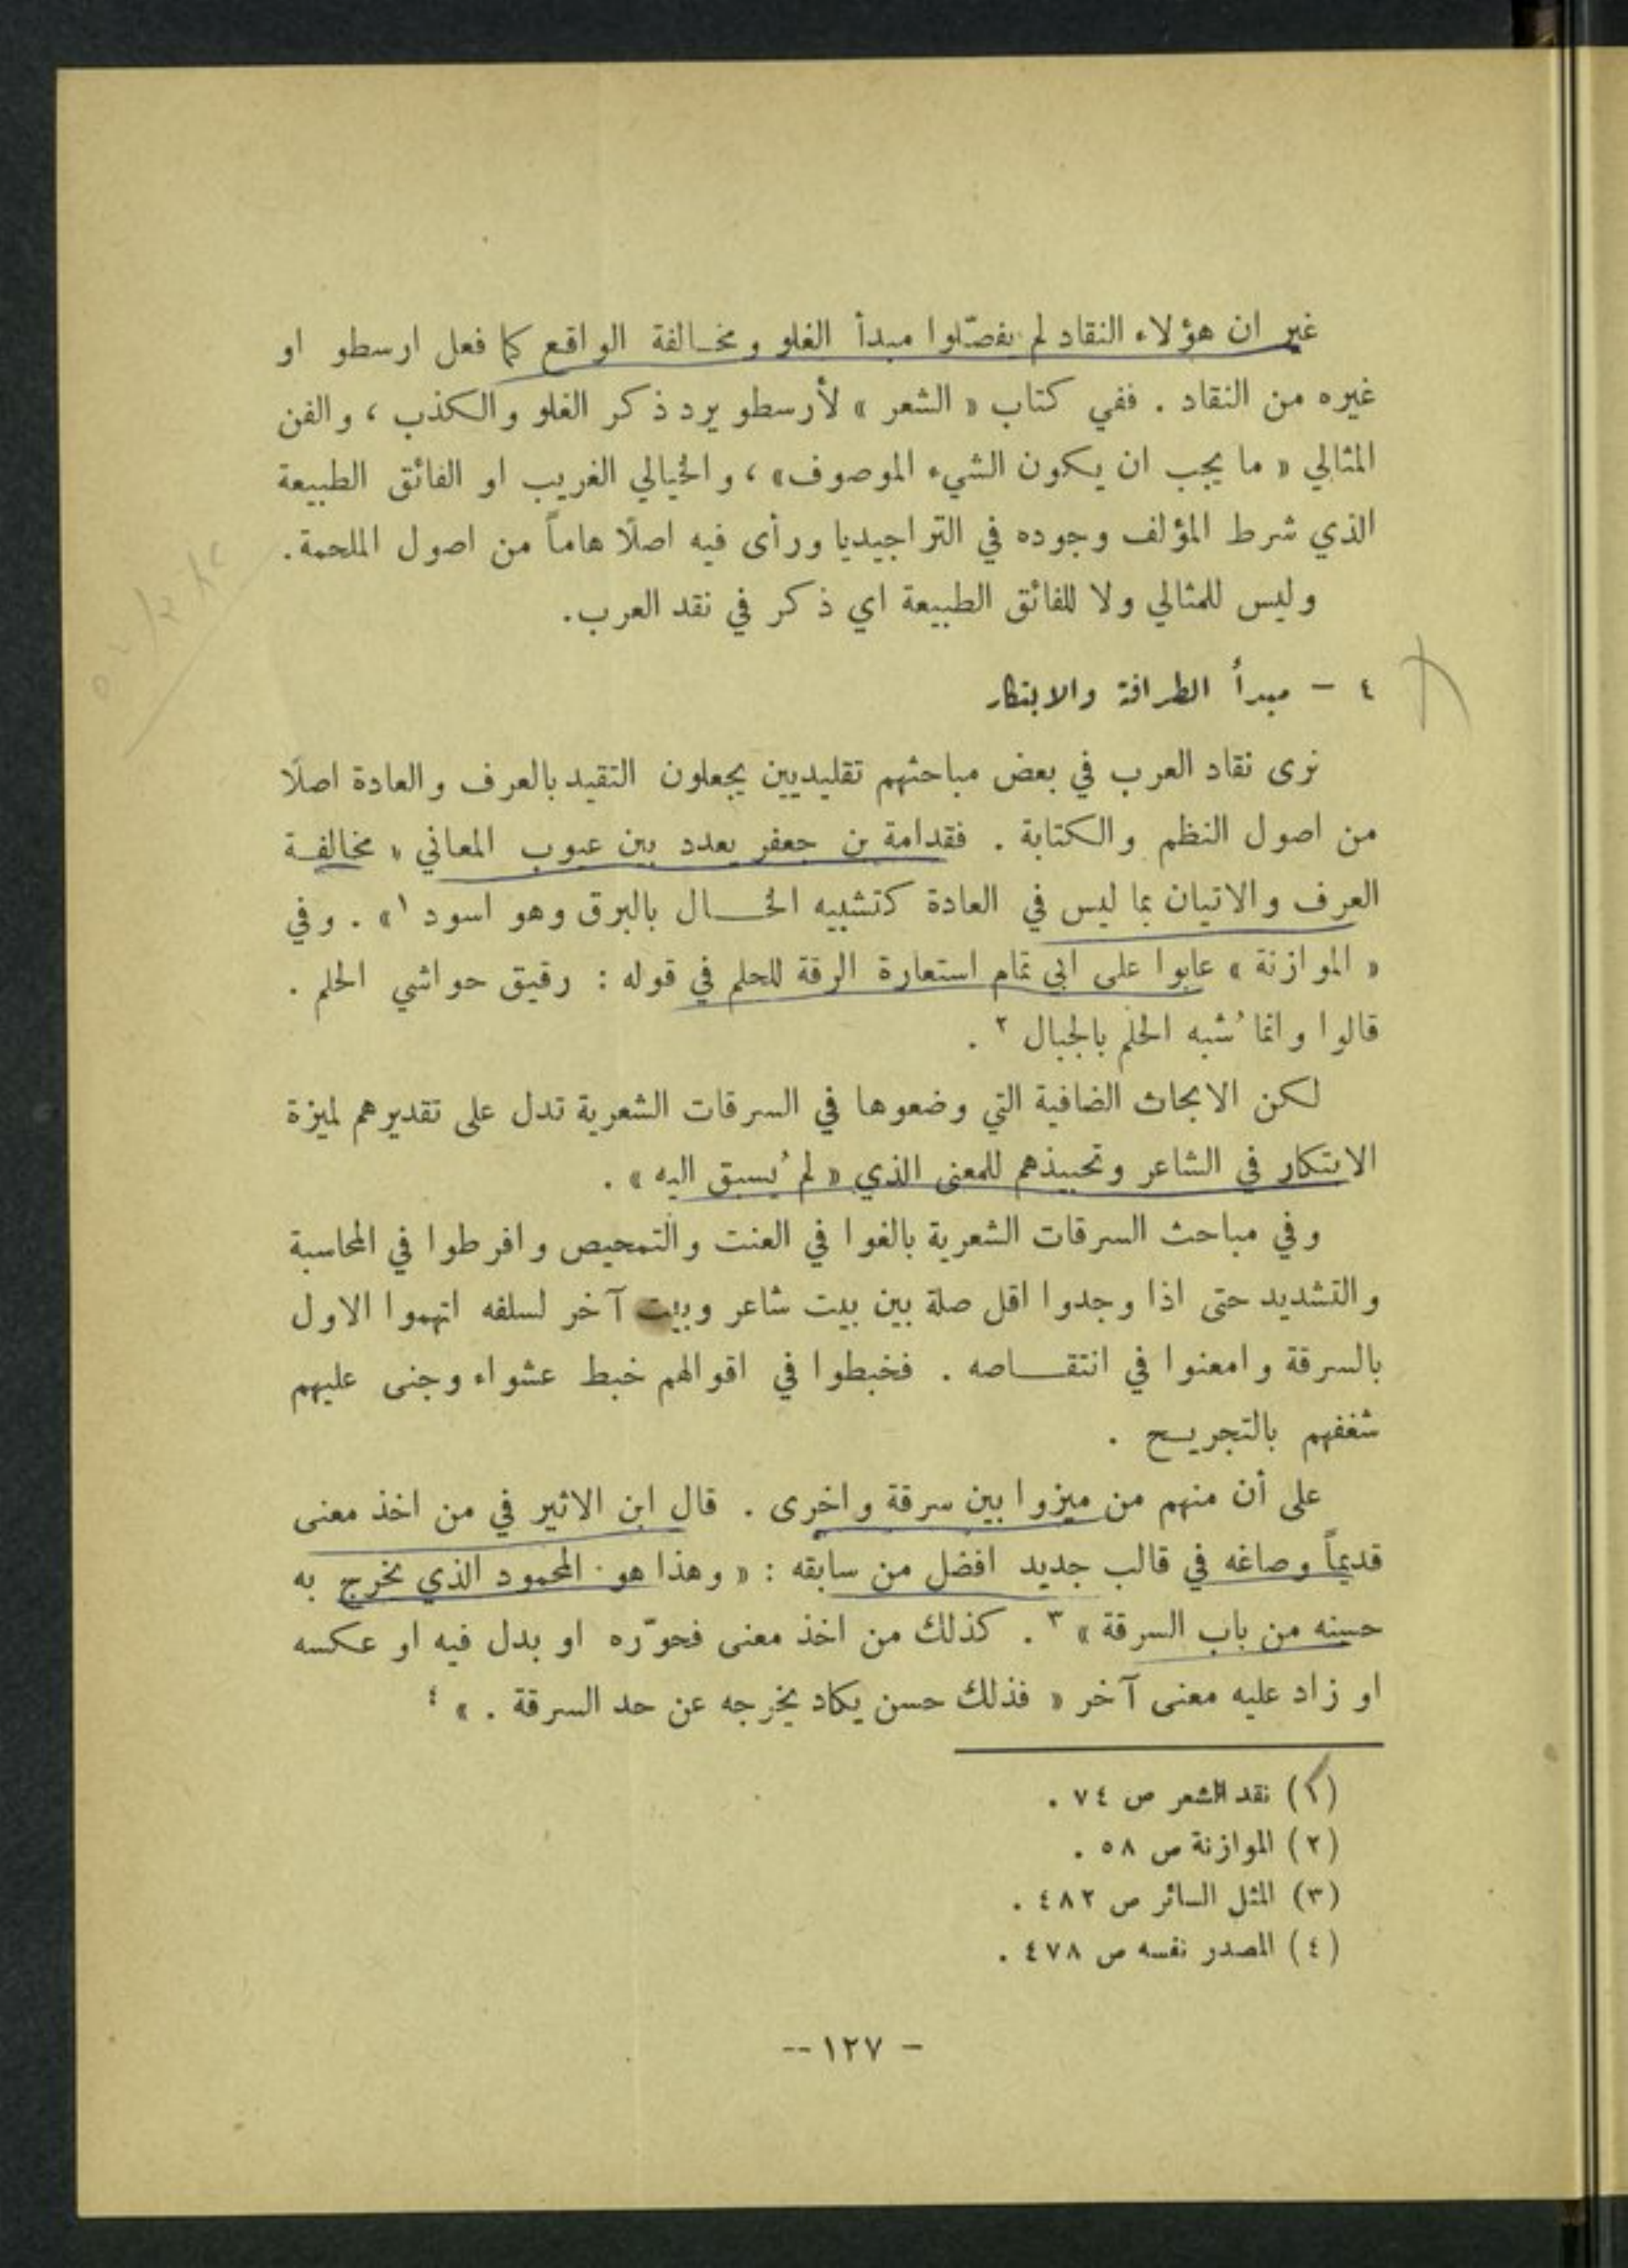 غير ان هؤلاء النقاد لم يفصّلوا مبدأ الغلو ومخالفة الواقع كما فعل ارسطو او
غيره من النقاد . ففي كتاب « الشعر » لأرسطو يرد ذكر الغلو والكذب ، والفن
المثالي « ما يجب ان يكون الشيء الموصوف » ، والخيالي الغريب او الفائق الطبيعة
الذي شرط المؤلف وجوده في التراجيديا ورأى فيه اصلًا هاماً من اصول الملحمة .
وليس للمثالي ولا للفائق الطبيعة اي ذكر في نقد العرب .
٤ – مبدأ الطرافة والابتكار
نرى نقاد العرب في بعض مباحثهم تقليديين يجعلون التقيد بالعرف والعادة اصلًا
من اصول النظم والكتابة . فقدامة بن جعفر يعدد بين عيوب المعاني « مخالفة
العرف والاتيان بما ليس في العادة كتشبيه الخال بالبرق وهو اسود ١ » . وفي
« الموازنة » عابوا على ابي تمام استعارة الرقة للحلم في قوله : رقيق حواشي الحلم .
قالوا وانما شُبه الحلم بالجبال ٢ .
لكن الابحاث الضافية التي وضعوها في السرقات الشعرية تدل على تقديرهم لميزة
الابتكار في الشاعر وتحبيذهم للمعنى الذي « لم يُسبق اليه » .
وفي مباحث السرقات الشعرية بالغوا في العنت والتمحيص وافرطوا في المحاسبة
والتشديد حتى اذا وجدوا اقل صلة بين بيت شاعر وبيت آخر لسلفه اتهموا الاول
بالسرقة وامعنوا في انتقاصه . فخبطوا في اقوالهم خبط عشواء وجنى عليهم
شغفهم بالتجريح .
على أن منهم من ميزوا بين سرقة واخرى . قال ابن الاثير في من اخذ معنى
قديماً وصاغه في قالب جديد افضل من سابقه : « وهذا هو المحمود الذي يخرج به
حسنه من باب السرقة » ٣ . كذلك من اخذ معنى فحوّره او بدل فيه او عكسه
او زاد عليه معنى آخر « فذلك حسن يكاد يخرجه عن حد السرقة . » ٤
(١) نقد الشعر ص ٧٤ .
(٢) الموازنة ص ٥٨ .
(٣) المثل السائر ص ٤٨٢ .
(٤) المصدر نفسه ص ٤٧٨ .
– ١٢٧ --